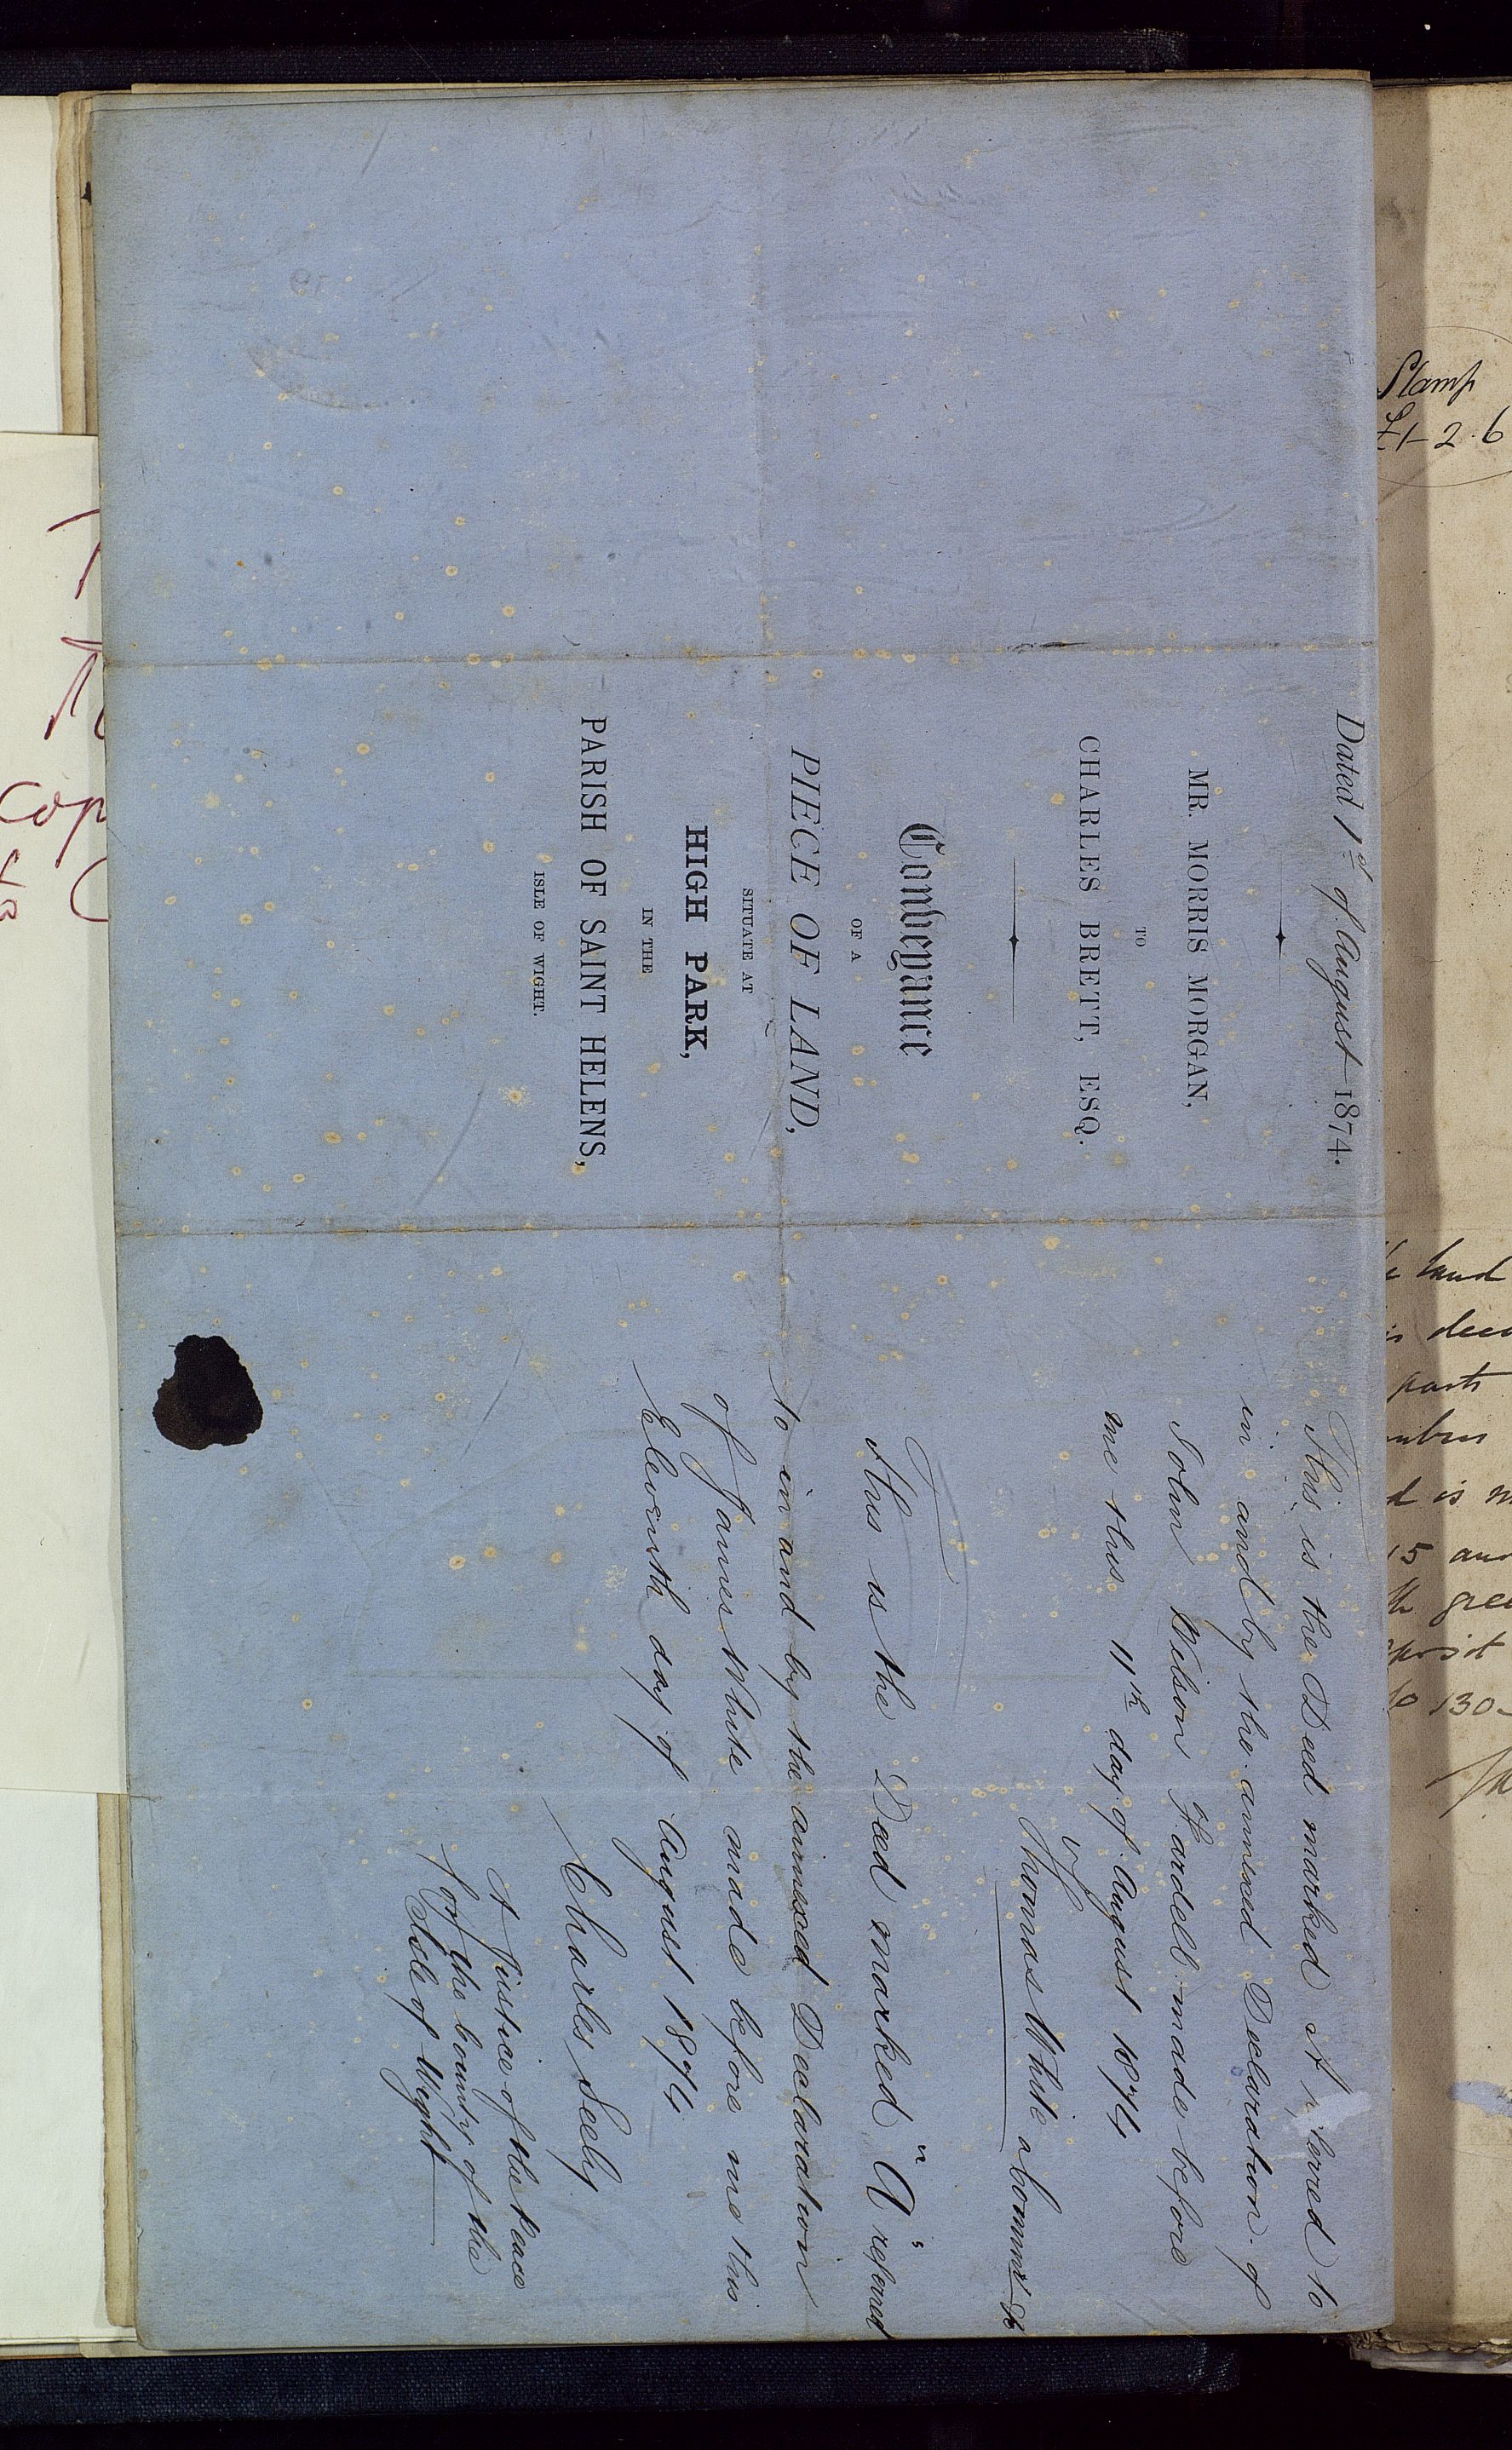 Dated 1st of August 1874.
MR. MORRIS MORGAN,
TO
CHARLES BRETT, ESQ.
Conveyance
OF A
PIECE OF LAND,
SITUATE AT
HIGH PARK,
IN THE
PARISH OF SAINT HELENS,
ISLE OF WIGHT.
This is the Deed marked A referred to
in and by the annexed Declaration of
John Wilson Fardell made before
me this 11th day of August 1874
Thomas White
This is the Deed marked "A" referred
to in and by the annexed Declaration
of James White made before me this
Eleventh day of August 1874
Charles Seely
A Justice of the Peace
for the County of the
Isle of Wight
Stamp
£1-2.6
land
parts
d is
15
to 130
Cop